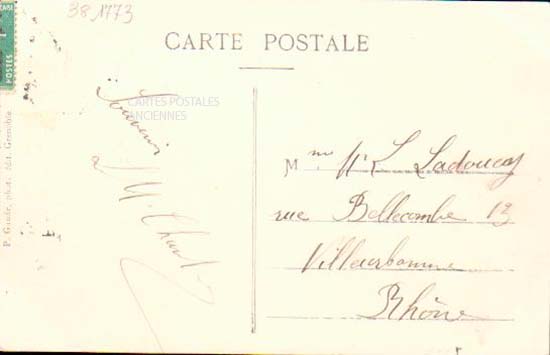 38 1773
POSTES
CARTE POSTALE
CARTES POSTALES
ANCIENNES
Souvenir
à
P. Gaude, phot. édit. Grenoble
M
rue Bellecombe 13
Villeurbanne
Rhône